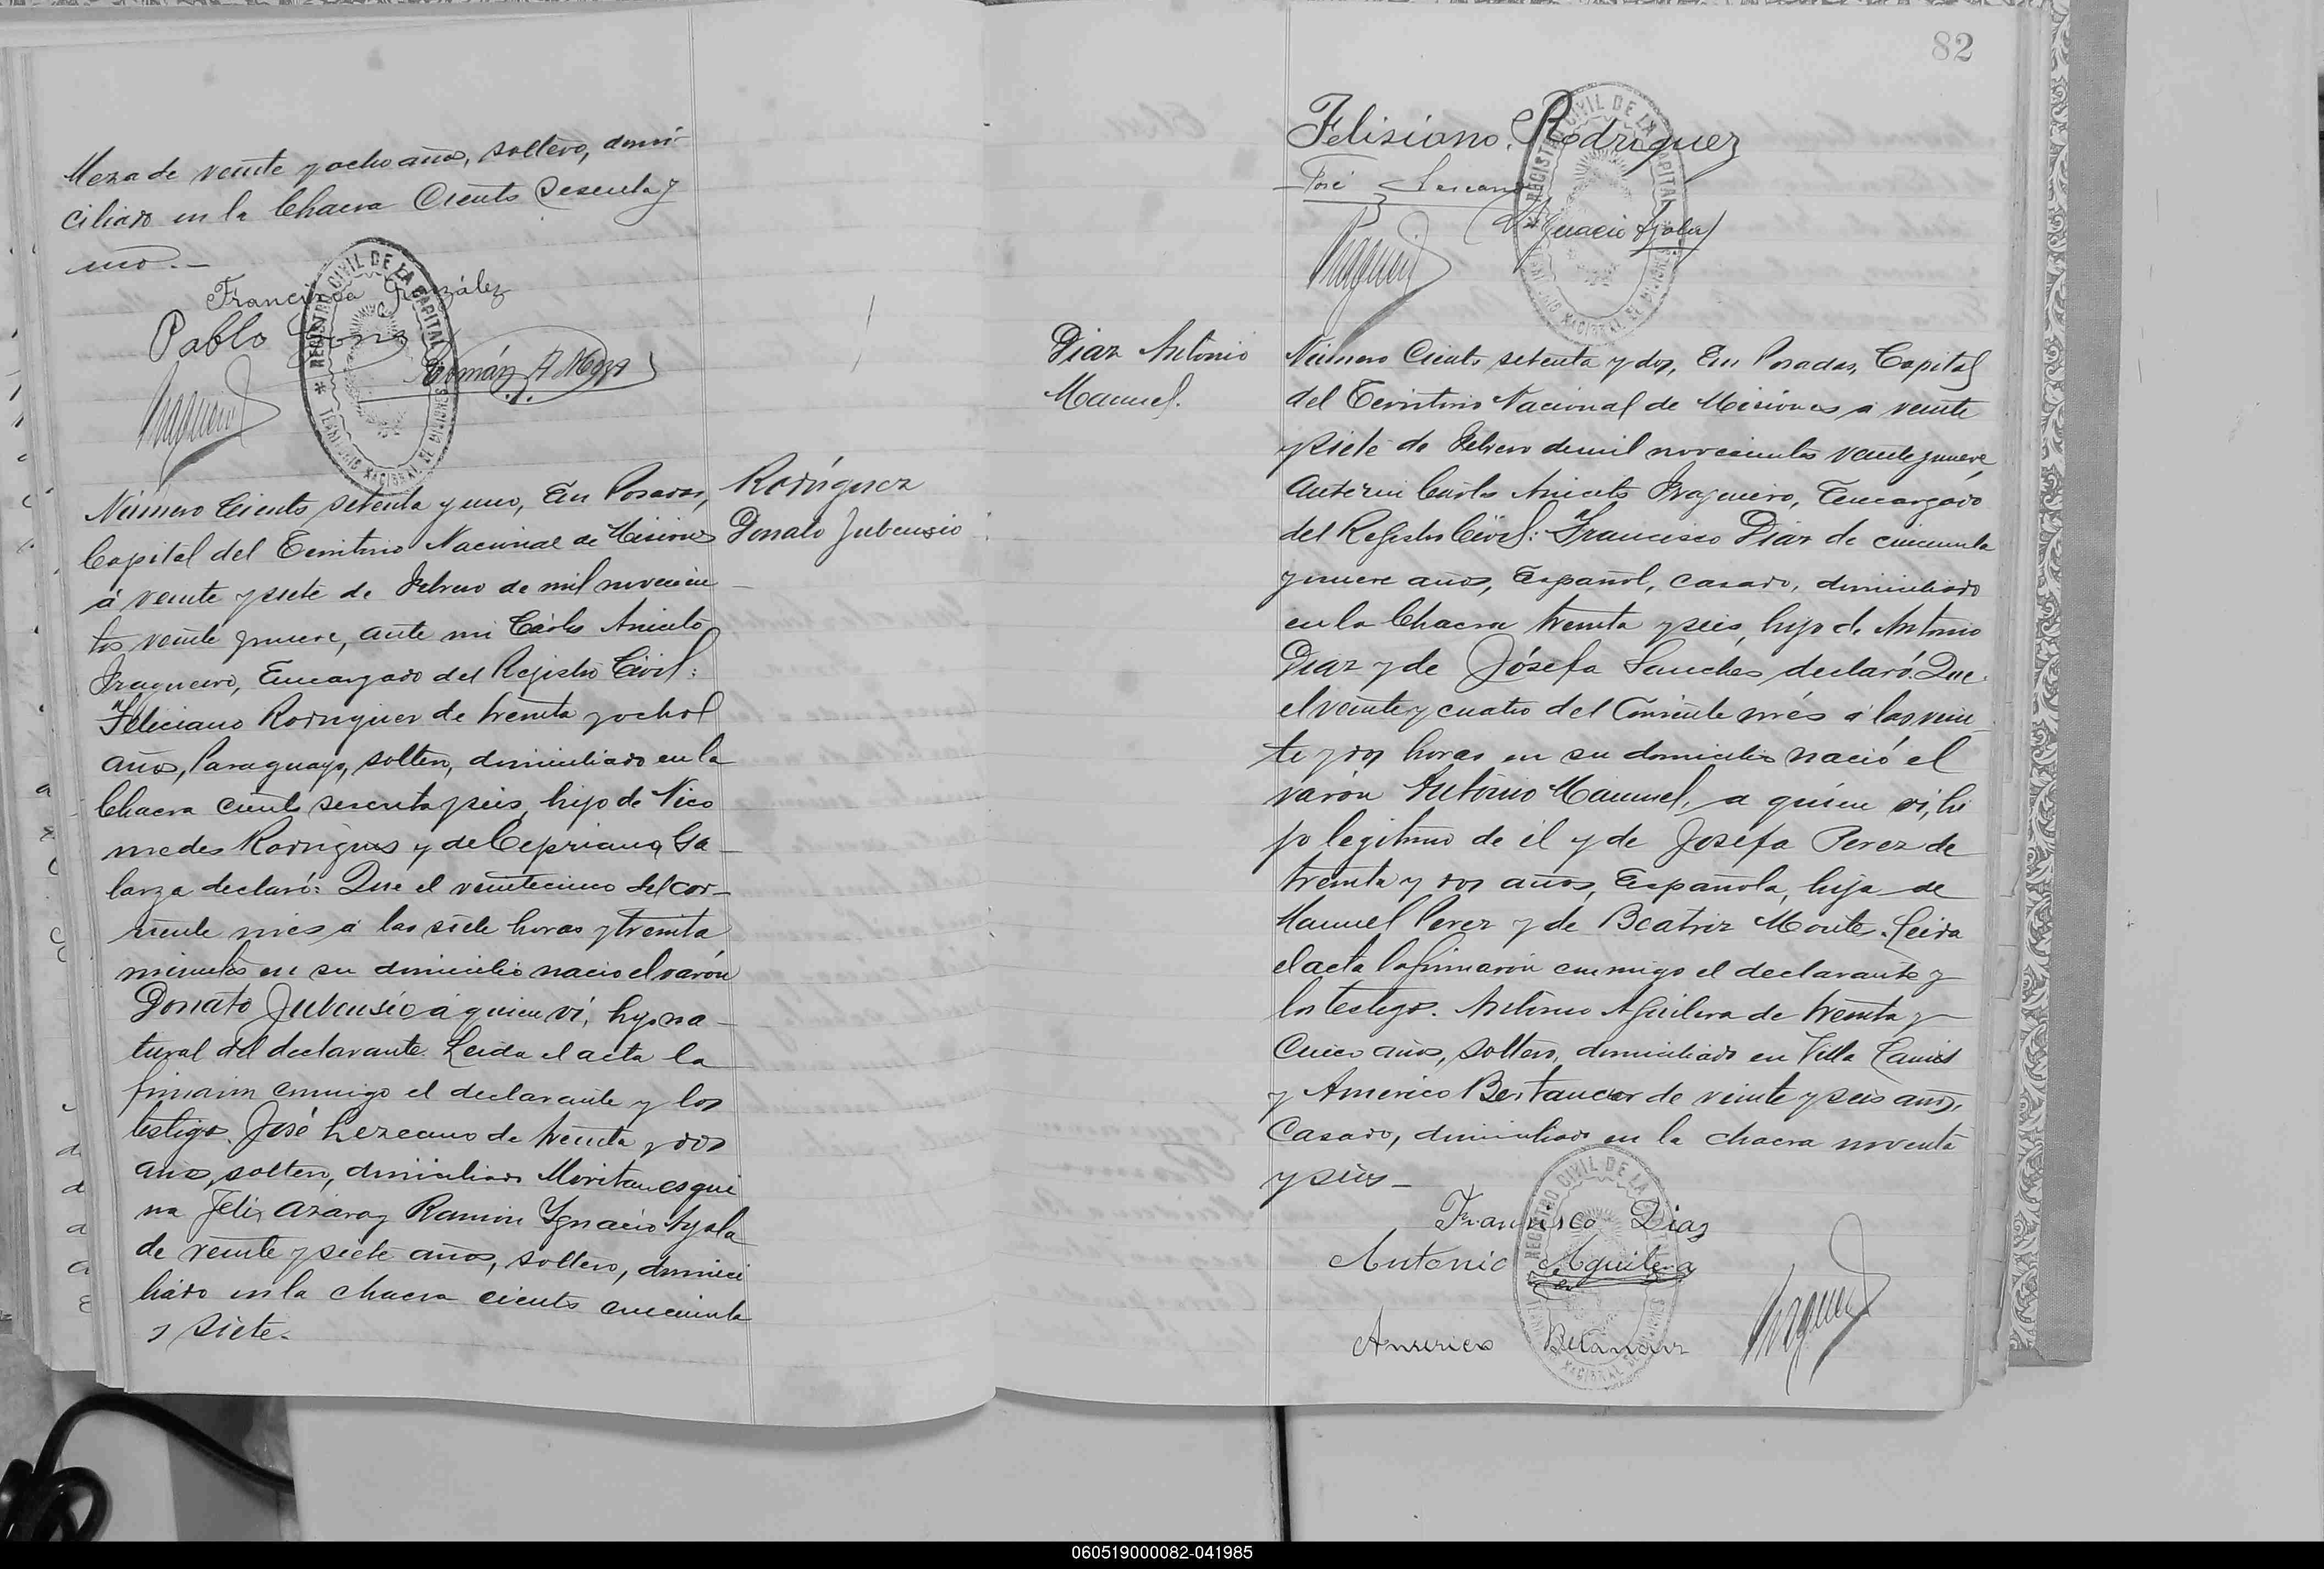 Meza de veinte y ocho años, soltero, domi-
ciliado en la Chacra Ciento Sesenta y
uno.-
Francisca González
Pablo
Román A Meza
REGISTRO CIVIL DE LA CAPITAL
TERRITORIO NACIONAL DE MISIONES
Número Ciento setenta y uno, En Posadas,
Capital del Territorio Nacional de Misiones
á veinte y siete de Febrero de mil novecien
tos veinte y nueve, ante mi Cárlos Aniceto
Fragueiro, Encargado del Registro Civil:
Feliciano Rodriguez de treinta y ocho
años, Paraguayo, soltero, domiciliado en la
Chacra ciento sesenta y seis, hijo de Nico
medes Rodriguez y de Cepriana Ga-
larza declaró: Que el veintecinco del cor-
riente més á las siete horas y treinta
minutos en su domicilio nacio el varón
Donato Jubensio á quien ví, hijo na-
tural del declarante. Leida el acta la
firmaron conmigo el declarante y los
testigos. José Lezcano de treinta y dos
años, soltero, domiciliado esqui
na Feliz Azara y Ramon Ygnacio Ayala
de veinte y siete años, soltero, domici
liado en la chacra ciento cincuenta
y siete.
Rodríguez
Donato Jubensio
82
Felisiano Rodriguez
José Lescano
Ygnacio Ayala
REGISTRO CIVIL DE LA CAPITAL
TERRITORIO NACIONAL DE MISIONES
Diaz Antonio
Manuel.
Número Ciento setenta y dos, En Posadas, Capital
del Territorio Nacional de Misiones a veinte
y siete de Febrero de mil novecientos veinte y nueve
ante mi Carlos Aniceto Fragueiro, Encargado
del Registro Civil: Francisco Diaz de cincuenta
y nueve años, Español, casado, domiciliado
en la Chacra treinta y seis, hijo de Antonio
Diaz y de Jósefa Sanches declaró: Que
el veinte y cuatro del Corriente més á las vein
te y dos horas en su domicilio nació el
varón Antonio Manuel, a quien ví, hi
jo legitimo de él y de Josefa Perez de
treinta y dos años, Española, hija de
Manuel Perez y de Beatriz Montes. Leida
el acta la firmaron conmigo el declarante y
los testigos. Antonio Aguilera de treinta y
Cinco años, soltero, domiciliado en Villa
y Americo de veinte y seis años,
Casado, domiciliado en la chacra noventa
y seis-
Francisco Diaz
Antonio Aguilera
Americo
REGISTRO CIVIL DE LA
060519000082-041985